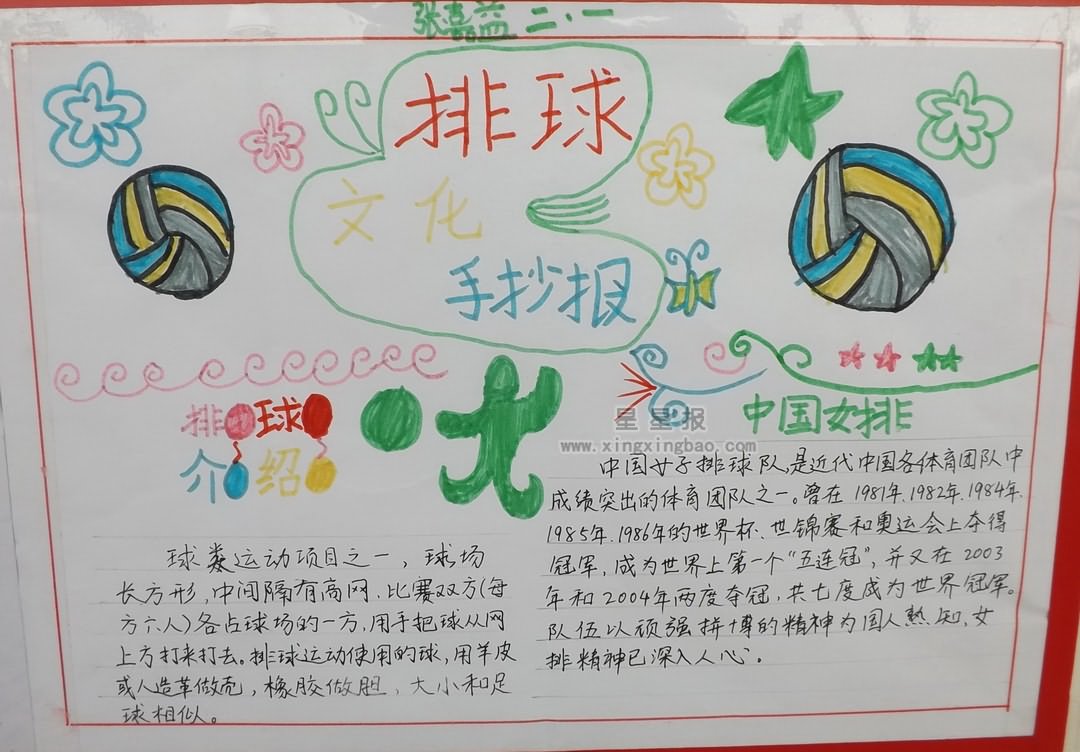 张嘉益 二.一
排球
文化
手抄报
排球
介绍
球类运动项目之一，球场
长方形，中间隔有高网，比赛双方(每
方六人)各占球场的一方，用手把球从网
上方打来打去。排球运动使用的球，用羊皮
或人造革做壳，橡胶做胆，大小和足
球相似。
星星报
www.xingxingbao.com
中国女排
中国女子排球队，是近代中国各体育团队中
成绩突出的体育团队之一。曾在1981年、1982年、1984年、
1985年、1986年的世界杯、世锦赛和奥运会上夺得
冠军，成为世界上第一个“五连冠”，并又在2003
年和2004年两度夺冠，共七度成为世界冠军。
队伍以顽强拼博的精神为国人熟知，女
排精神已深入人心。